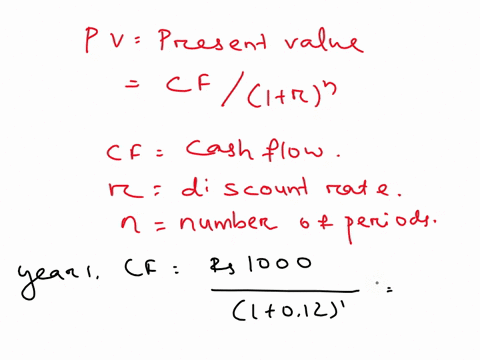 PV = Present value
= CF / (1+r)^n
CF = Cash flow.
r = discount rate.
n = number of periods.
year 1, CF = Rs 1000 / (1+0.12)^1 =